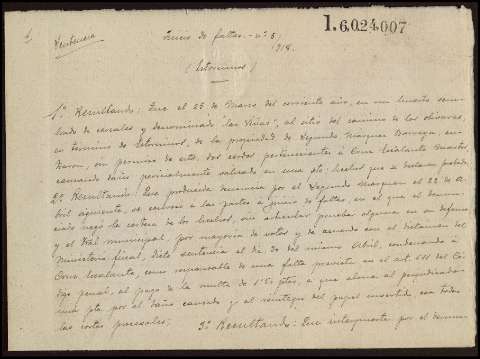 Sentencia
Juicio de faltas.- nº 5/
1918.
1.6.024.007
(Istorninos)
1º Resultando: Que el 25 de Marzo del corriente año, en un huerto sem-
brado de cereales y denominado "las Viñas", al sitio del camino de los olivares,
en término de Istorninos, de la propiedad de Segundo Marquez Borrego, en-
traron, sin permiso de este, dos cerdos pertenecientes á Cruz Escalante Maestro,
causando daños pericialmente valorado en una pta; hechos que se declaran probados.
2º Resultando: Que producida denuncia por el Segundo Marquez el 22 de A-
bril siguiente, se convocó á las partes á juicio de faltas, en el que el denun-
ciado negó la certeza de los hechos, sin articular pruebas alguna en su defensa
y el Tral municipal, por mayoría de votos y de acuerdo con el dictamen del
Ministerio fiscal, dictó sentencia el día 30 del mismo Abril, condenando á
Cruz Escalante, como responsable de una falta prevista en el art. 611 del Có-
digo penal, al pago de la multa de ptas, á que abone al perjudicado
una pta por el daño causado y al reintegro del papel invertido con todas
las costas procesales. 3º Resultando: Que interpuesta por el denun-